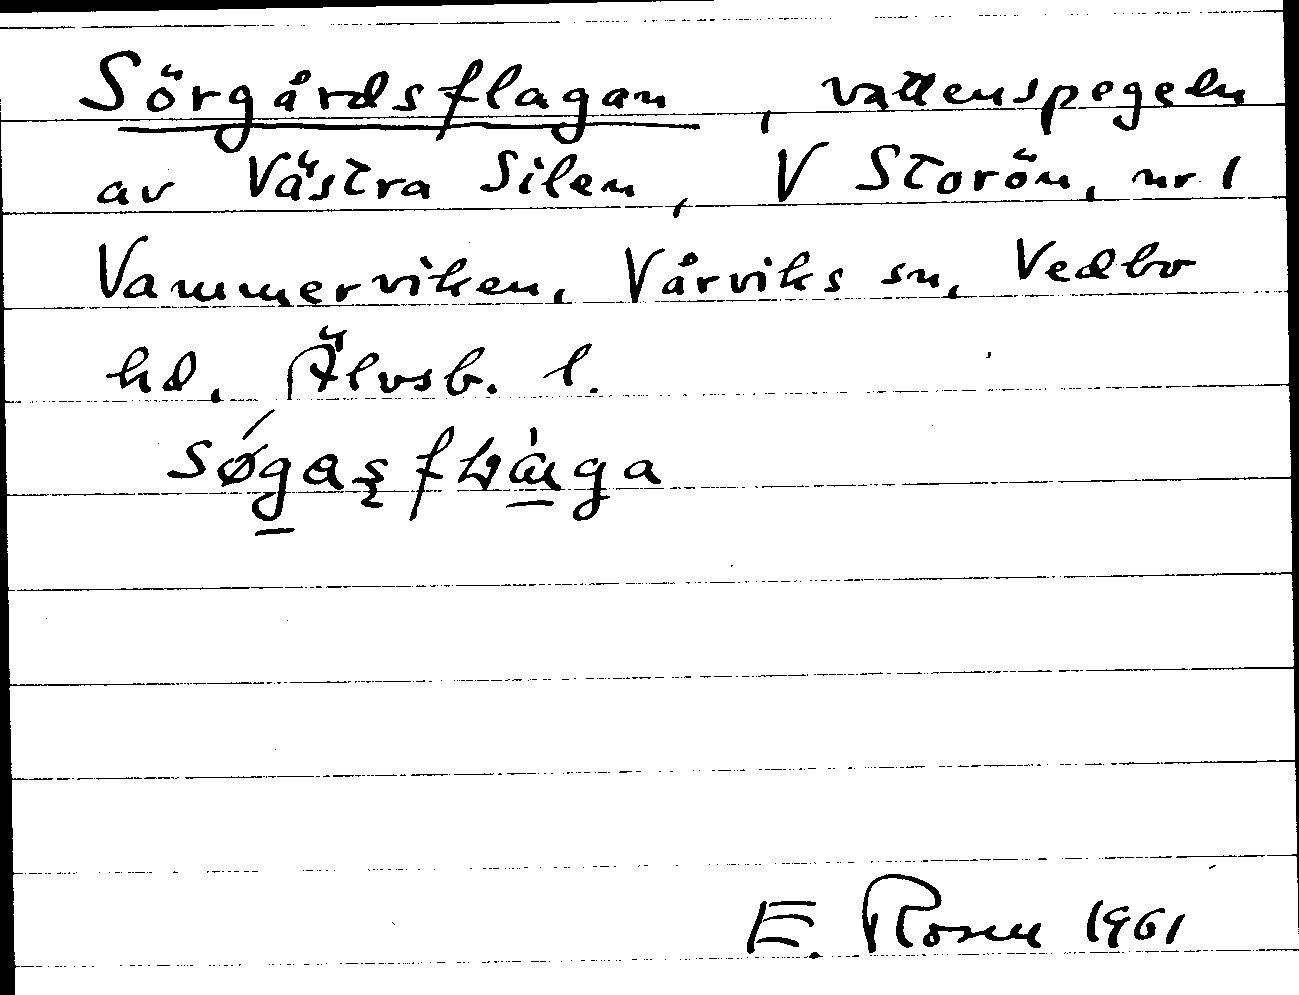 Sörgårdsflagan, vattenspegeln
av Västra Silen, V Storön, nr 1
Vammerviken, Vårviks sn, Vedbo
hd. Älvsb. l.
E. Rosen 1961